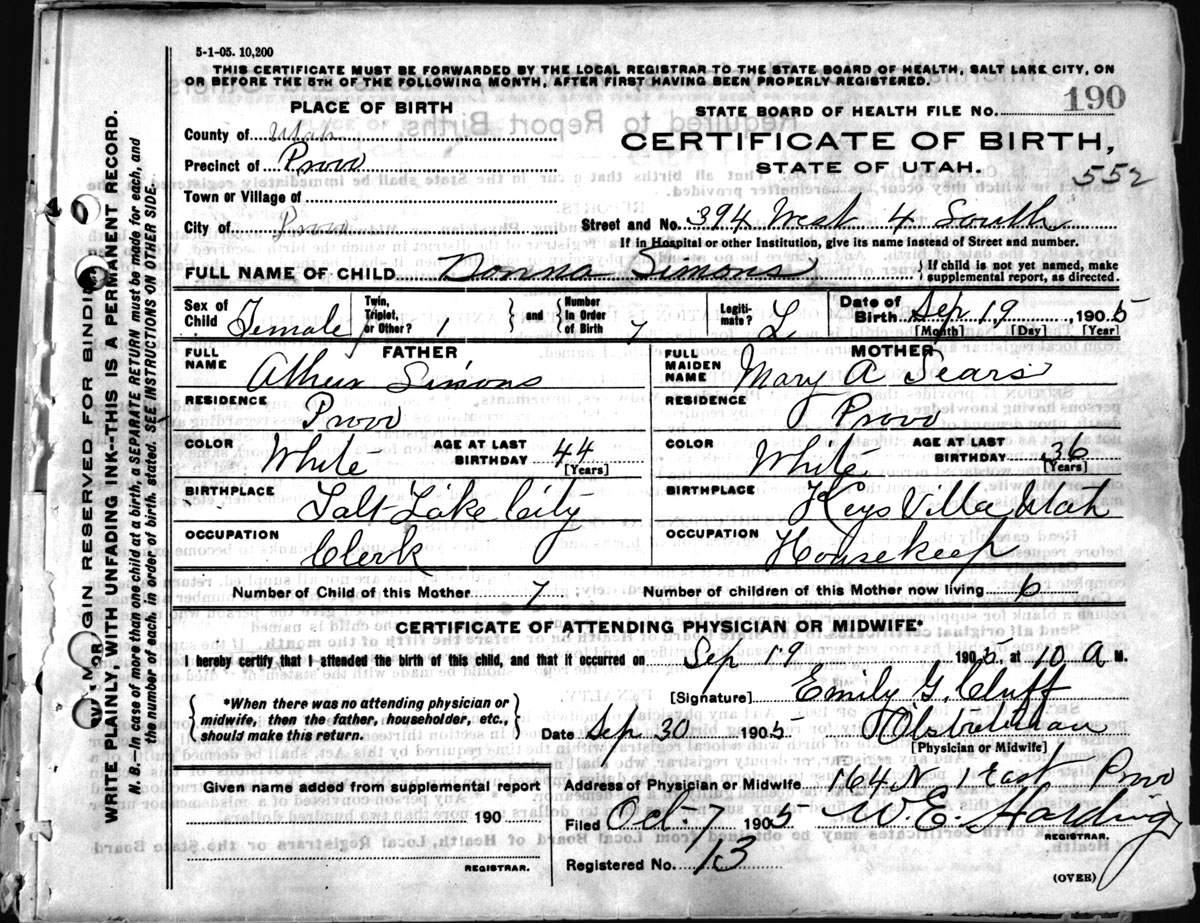 5-1-05. 10,200
THIS CERTIFICATE MUST BE FORWARDED BY THE LOCAL REGISTRAR TO THE STATE BOARD OF HEALTH, SALT LAKE CITY, ON
OR BEFORE THE 5TH OF THE FOLLOWING MONTH, AFTER FIRST HAVING BEEN PROPERLY REGISTERED.
PLACE OF BIRTH
STATE BOARD OF HEALTH FILE No. 190
County of Utah
CERTIFICATE OF BIRTH,
Precinct of Provo
STATE OF UTAH.
552
Town or Village of
City of Provo
Street and No. 394 West 4 South
If in Hospital or other Institution, give its name instead of Street and number.
FULL NAME OF CHILD Donna Simons
If child is not yet named, make
supplemental report, as directed.
Sex of
Child Female
Twin,
Triplet,
or Other? 1
and
Number
In Order
of Birth 7
Legiti-
mate? L
Date of
Birth Sep 19, 1905
[Month] [Day] [Year]
FATHER
FULL
NAME
Simons
RESIDENCE
Provo
COLOR
White
AGE AT LAST
BIRTHDAY 44
[Years]
BIRTHPLACE
Salt Lake City
OCCUPATION
Clerk
MOTHER
FULL
MAIDEN
NAME
Mary A Sears
RESIDENCE
Provo
COLOR
White
AGE AT LAST
BIRTHDAY 36
[Years]
BIRTHPLACE
Keys Villa Utah
OCCUPATION
Housekeep
Number of Child of this Mother 7
Number of children of this Mother now living 6
CERTIFICATE OF ATTENDING PHYSICIAN OR MIDWIFE*
I hereby certify that I attended the birth of this child, and that it occurred on Sep 19 1905, at 10 A M.
[Signature] Emily G. Cluff
*When there was no attending physician or
midwife, then the father, householder, etc.,
should make this return.
Date Sep 30 1905
[Physician or Midwife]
Given name added from supplemental report
190
REGISTRAR.
Address of Physician or Midwife 164 N 1 East Provo
Filed Oct. 7 1905 W. E. Harding
REGISTRAR.
Registered No. 13
(OVER)
MARGIN RESERVED FOR BINDING
WRITE PLAINLY, WITH UNFADING INK--THIS IS A PERMANENT RECORD.
N. B.--In case of more than one child at a birth, a SEPARATE RETURN must be made for each, and
the number of each, in order of birth, stated. SEE INSTRUCTIONS ON OTHER SIDE.